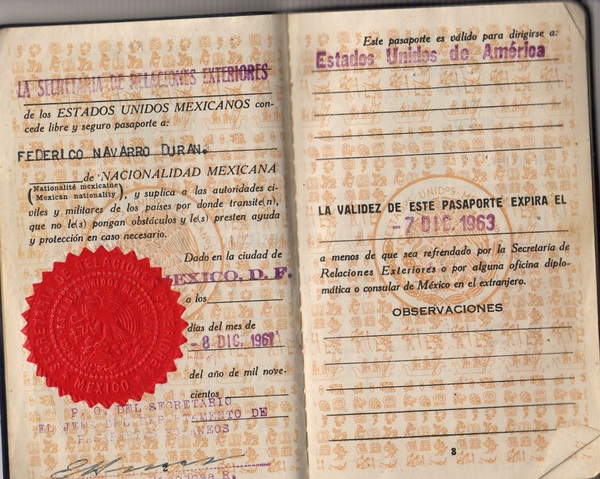 LA SECRETARIA DE RELACIONES EXTERIORES
de los ESTADOS UNIDOS MEXICANOS con-
cede libre y seguro pasaporte a:
FEDERICO NAVARRO DURAN.
de NACIONALIDAD MEXICANA
(Nationalité mexicaine
Mexican nationality), y suplica a las autoridades ci-
viles y militares de los países por donde transite(n),
que no le(s) pongan obstáculos y le(s) presten ayuda
y protección en caso necesario.
Dado en la ciudad de
MEXICO, D. F.
a los
días del mes de
- 8 DIC. 1961
del año de mil nove-
cientos
P. O. DEL SECRETARIO
EL JEFE DEL DEPARTAMENTO DE
MEXICO
Este pasaporte es válido para dirigirse a:
Estados Unidos de América
LA VALIDEZ DE ESTE PASAPORTE EXPIRA EL
- 7 DIC. 1963
a menos de que sea refrendado por la Secretaría de
Relaciones Exteriores o por alguna oficina diplo-
mática o consular de México en el extranjero.
OBSERVACIONES
3